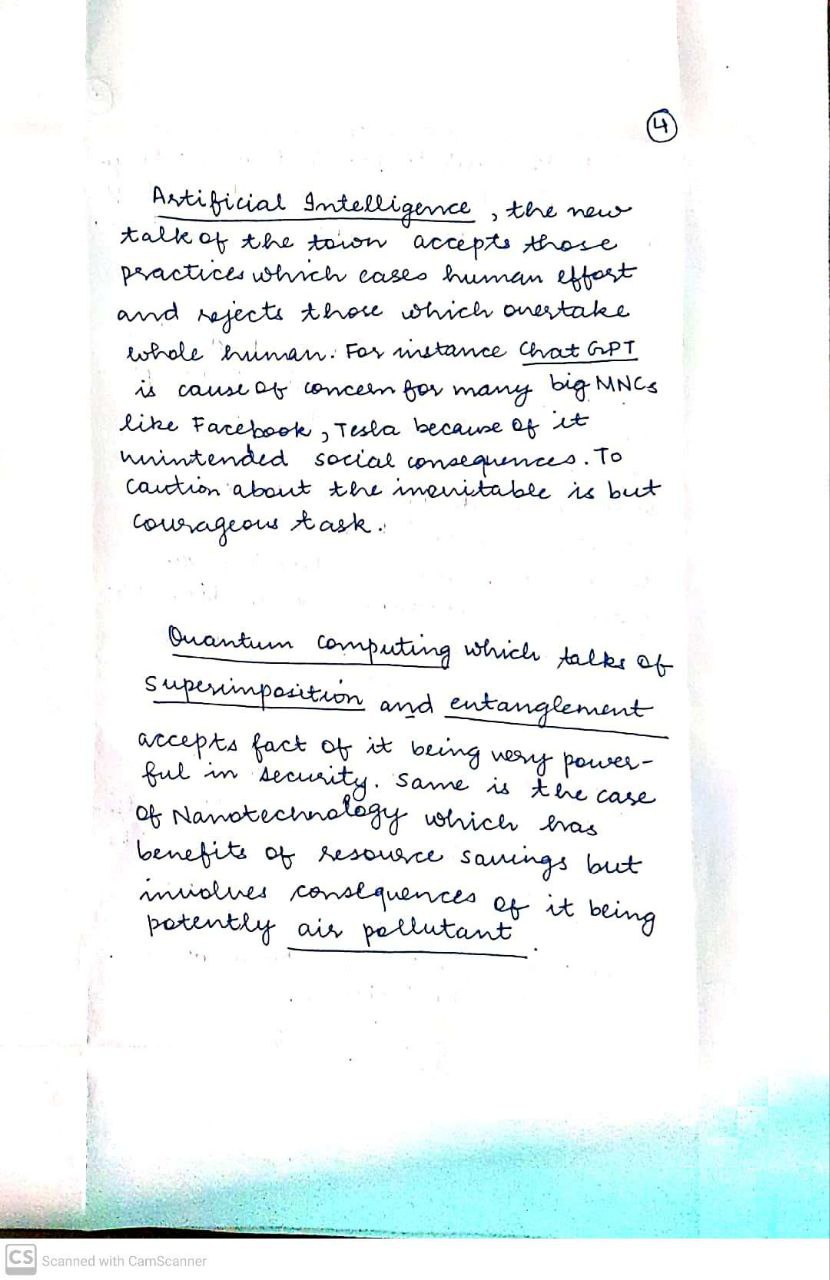 4
Artificial Intelligence, the new
talk of the town accepts those
practices which eases human effort
and rejects those which overtake
whole human. For instance Chat GPT
is cause of concern for many big MNCs
like Facebook, Tesla because of it
unintended social consequences. To
caution about the inevitable is but
courageous task.
Quantum computing which talks of
superimposition and entanglement
accepts fact of it being very power-
ful in security. Same is the case
of Nanotechnology which has
benefits of resource savings but
involves consequences of it being
potently air pollutant.
CS Scanned with CamScanner